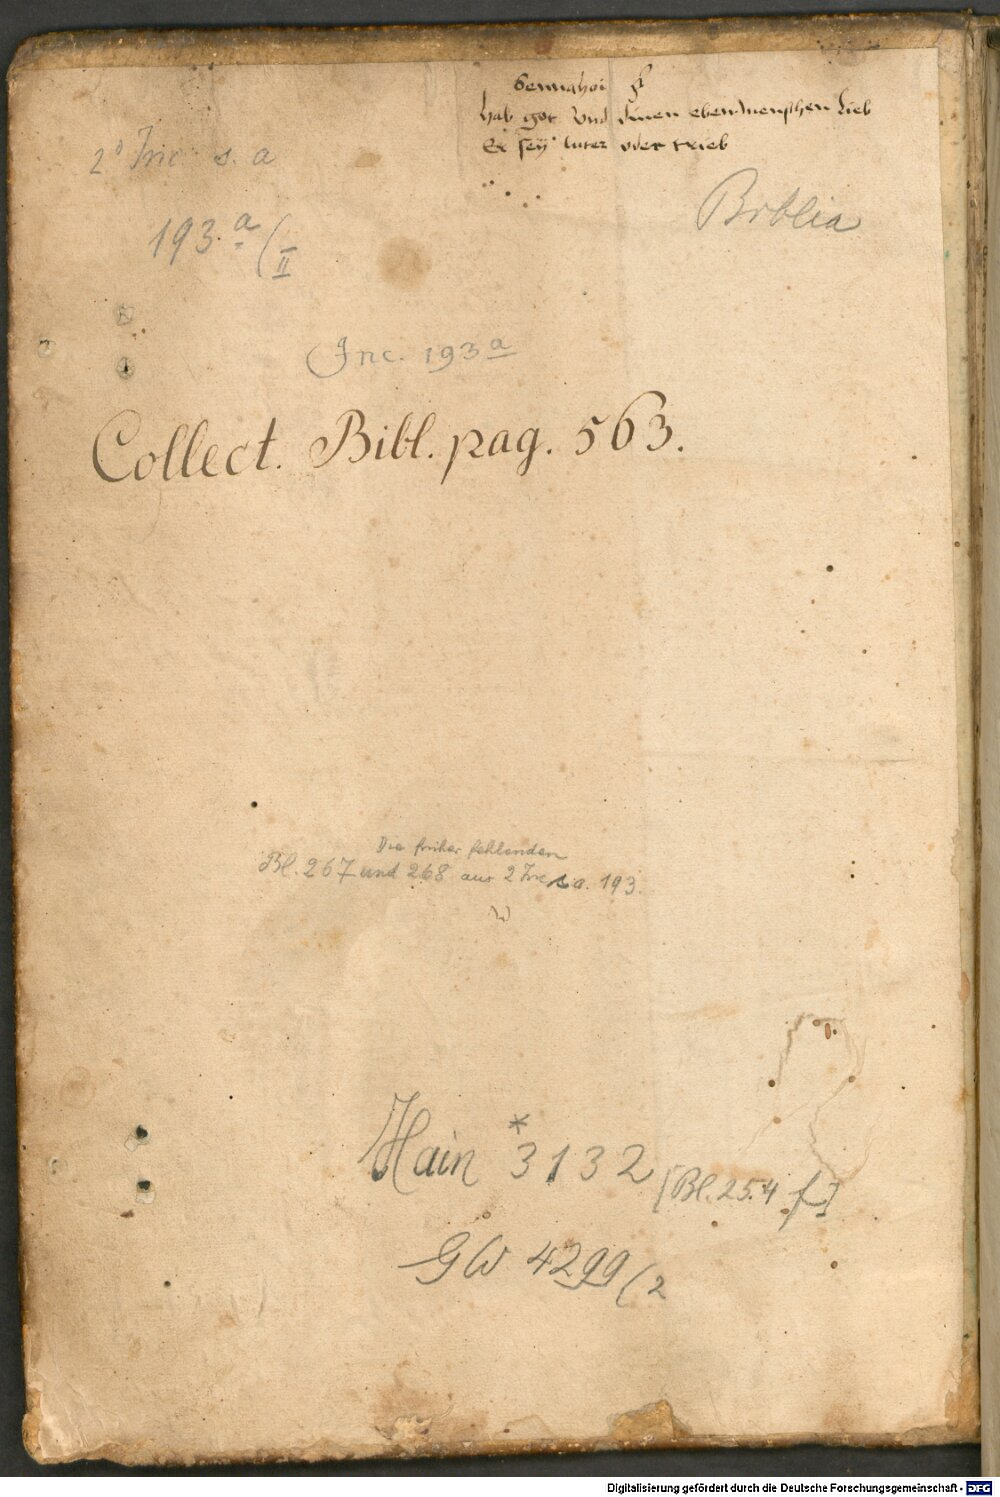 hab got und dinen ebenmenschen lieb
Er sey luter oder trieb
2° Inc s. a
Biblia
193.a (II
Inc. 193 a
Collect. Bibl. pag. 563.
Die früher fehlenden
Bl. 267 und 268 aus 2 Inc s.a. 193.
Hain *3132 [Bl. 254 f]
GW 4299 (2
Digitalisierung gefördert durch die Deutsche Forschungsgemeinschaft - DFG